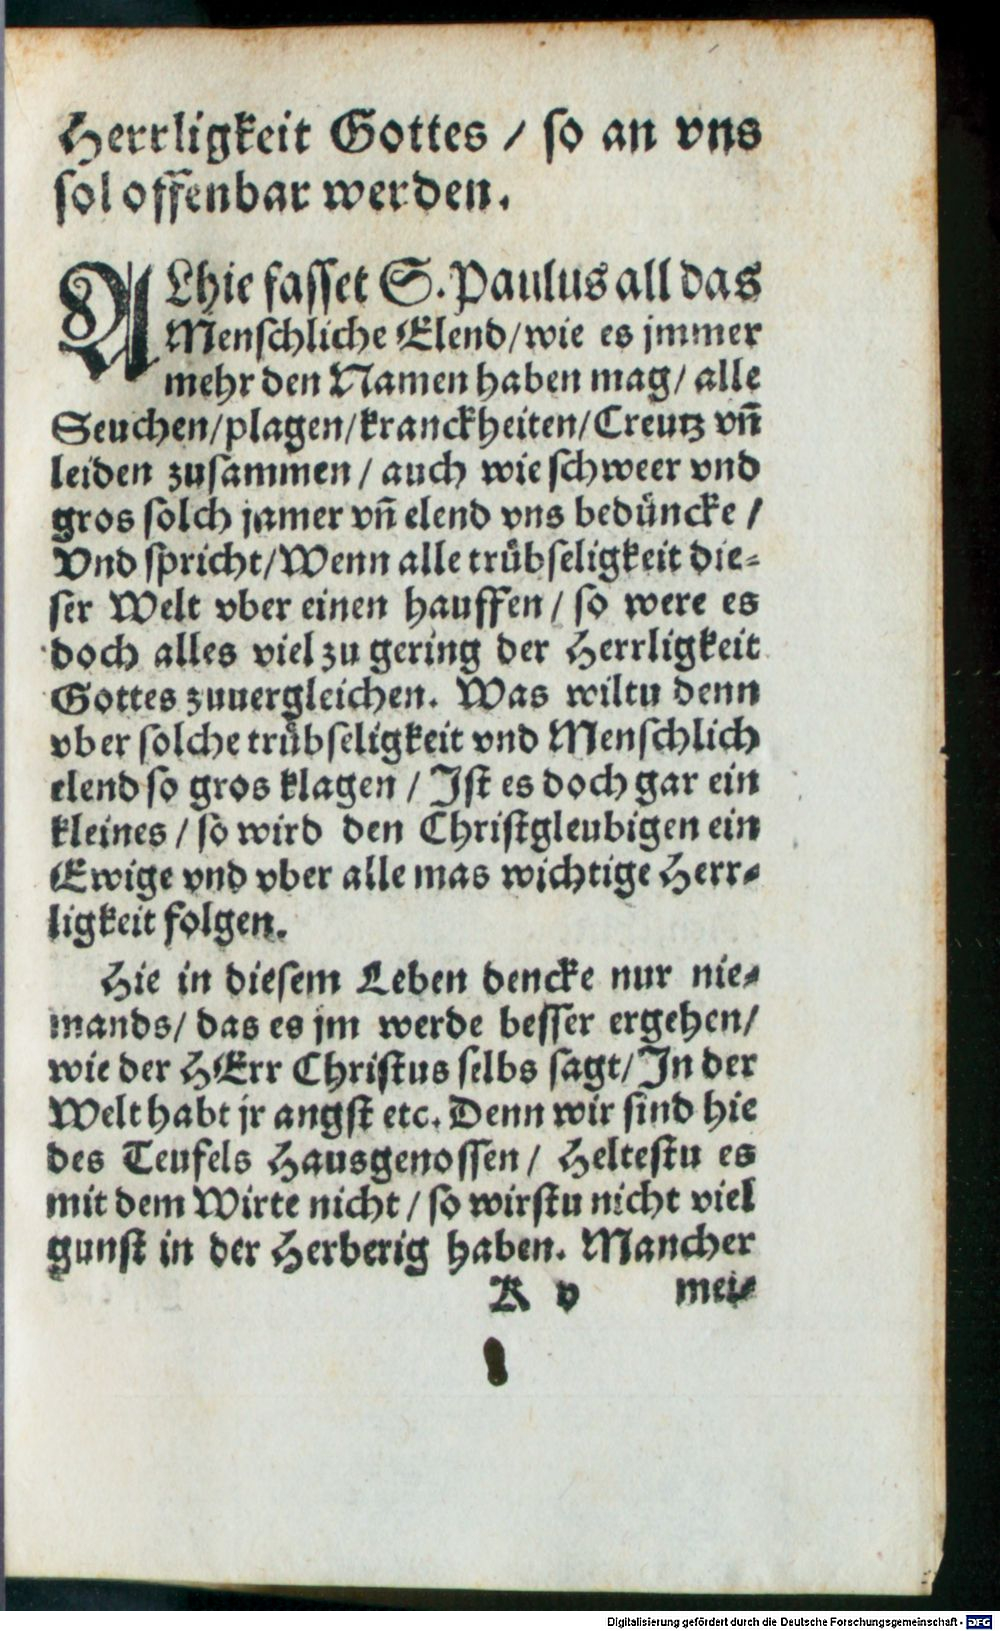 Herrligkeit Gottes / so an vns
sol offenbar werden.
ALhie fasset S. Paulus all das
Menschliche Elend/wie es jmmer
mehr den Namen haben mag/ alle
Seuchen/plagen/kranckheiten/Creutz vn̄
leiden zusammen / auch wie schweer vnd
gros solch jamer vn̄ elend vns bedüncke /
Vnd spricht/Wenn alle trübseligkeit die-
ser Welt vber einen hauffen / so were es
doch alles viel zu gering der Herrligkeit
Gottes zuuergleichen. Was wiltu denn
vber solche trübseligkeit vnd Menschlich
elend so gros klagen / Ist es doch gar ein
kleines / so wird den Christgleubigen ein
Ewige vnd vber alle mas wichtige Herr-
ligkeit folgen.
Hie in diesem Leben dencke nur nie-
mands/ das es jm werde besser ergehen/
wie der HErr Christus selbs sagt/ In der
Welt habt jr angst etc. Denn wir sind hie
des Teufels Hausgenossen / Heltestu es
mit dem Wirte nicht / so wirstu nicht viel
gunst in der Herberig haben. Mancher
K v mei-
Digitalisierung gefördert durch die Deutsche Forschungsgemeinschaft - DFG